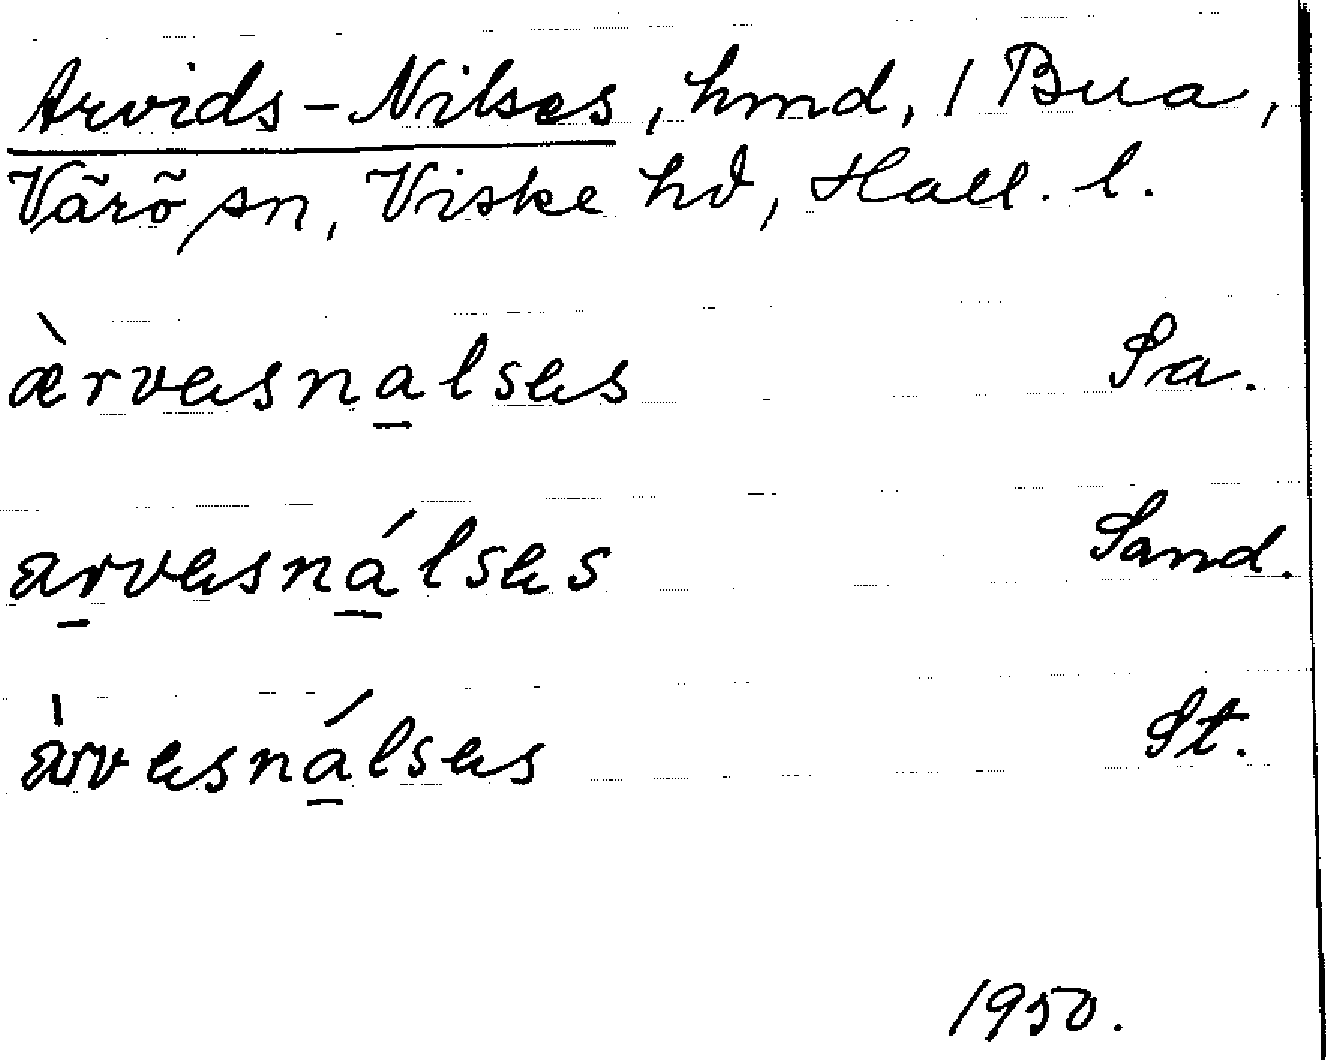 Arvids-Nilses, hmd, 1 Bua,
Värö sn, Viske hd, Hall. l.
æ̀rvesnalses Sa.
arvesnálses Sand.
àrvesnálses St.
1950.